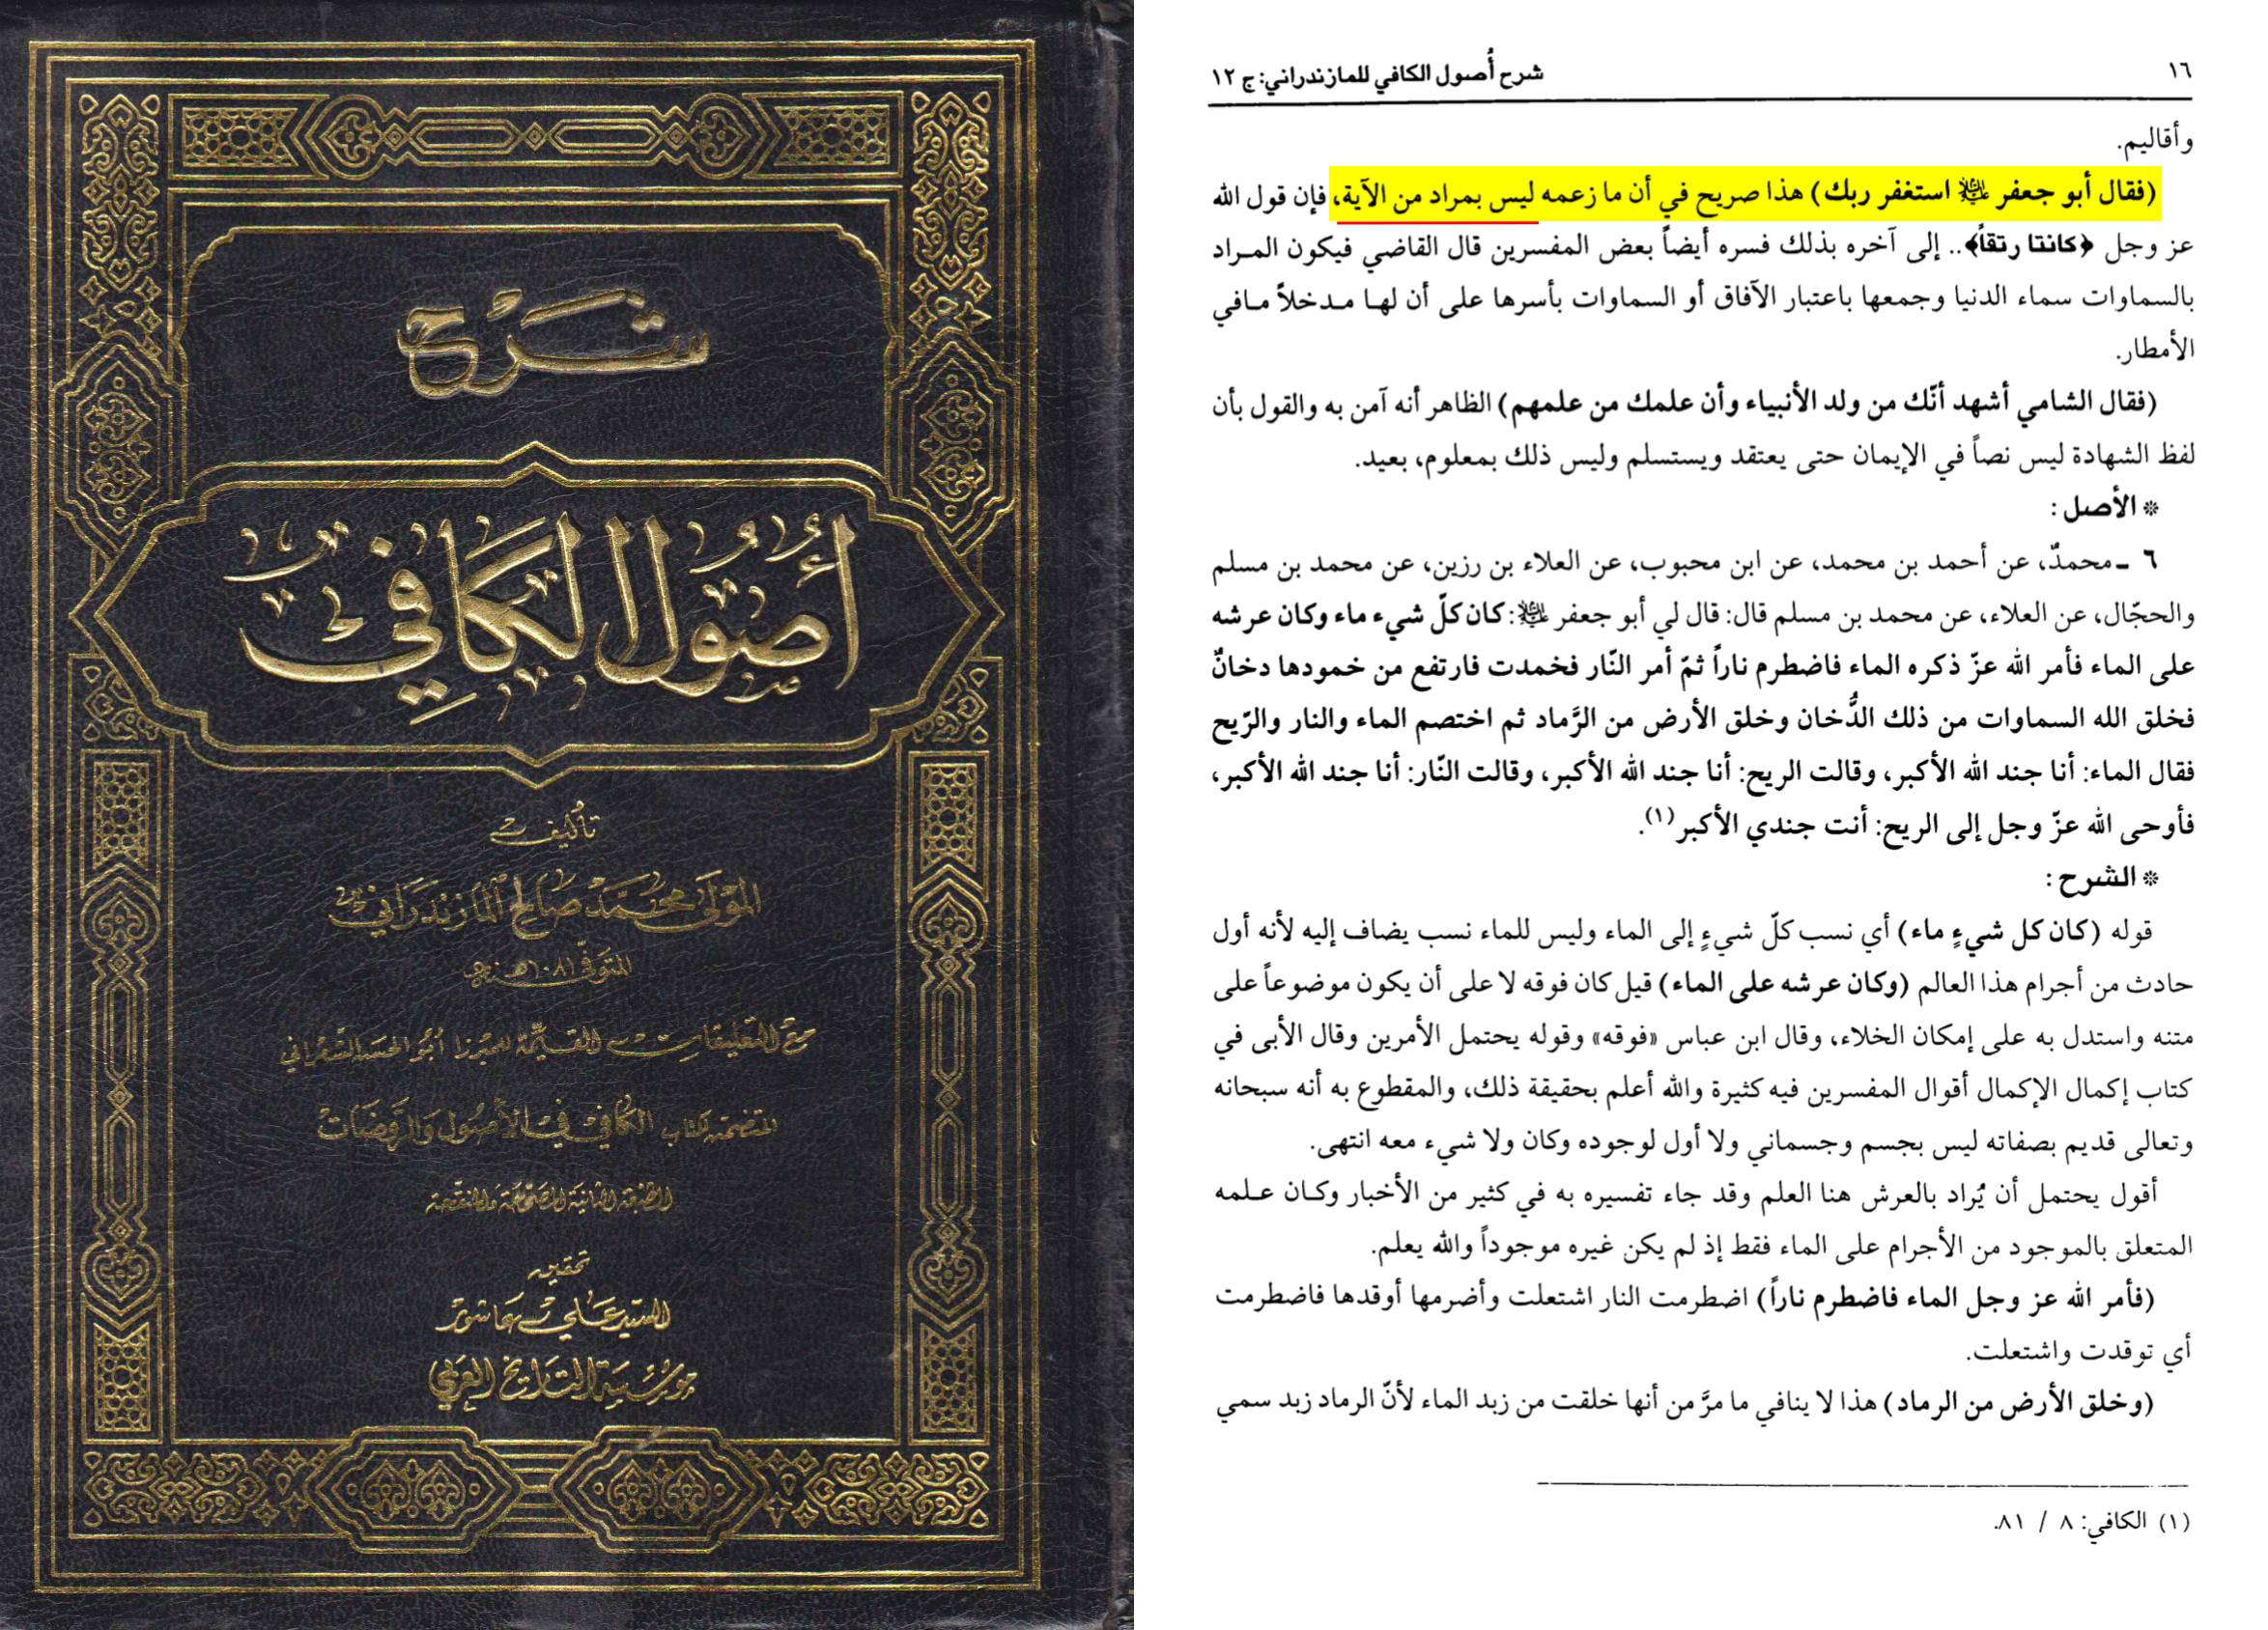 شرح
أصول الكافي
تأليف
المولى محمد صالح المازندراني
المتوفى ١٠٨١ هـ
مع التعليقات القيمة للميرزا أبو الحسن الشعراني
المتضمنة لكتاب الكافي في الأصول والروضات
الطبعة الثانية المصححة والمنقحة
تحقيق
السيد علي عاشور
مؤسسة التاريخ العربي
١٦
شرح أُصول الكافي للمازندراني: ج ١٢
وأقاليم.
(فقال أبو جعفر عليه السلام استغفر ربك) هذا صريح في أن ما زعمه ليس بمراد من الآية، فإن قول الله
عز وجل ﴿كانتا رتقاً﴾.. إلى آخره بذلك فسره أيضاً بعض المفسرين قال القاضي فيكون المـراد
بالسماوات سماء الدنيا وجمعها باعتبار الآفاق أو السماوات بأسرها على أن لهـا مـدخلاً مـافي
الأمطار.
(فقال الشامي أشهد أنّك من ولد الأنبياء وأن علمك من علمهم) الظاهر أنه آمن به والقول بأن
لفظ الشهادة ليس نصاً في الإيمان حتى يعتقد ويستسلم وليس ذلك بمعلوم، بعيد.
* الأصل:
٦ ـ محمدٌ، عن أحمد بن محمد، عن ابن محبوب، عن العلاء بن رزين، عن محمد بن مسلم
والحجّال، عن العلاء، عن محمد بن مسلم قال: قال لي أبو جعفر عليه السلام: كان كلّ شيء ماء وكان عرشه
على الماء فأمر الله عزّ ذكره الماء فاضطرم ناراً ثمّ أمر النّار فخمدت فارتفع من خمودها دخانٌ
فخلق الله السماوات من ذلك الدُّخان وخلق الأرض من الرَّماد ثم اختصم الماء والنار والرّيح
فقال الماء: أنا جند الله الأكبر، وقالت الريح: أنا جند الله الأكبر، وقالت النّار: أنا جند الله الأكبر،
فأوحى الله عزّ وجل إلى الريح: أنت جندي الأكبر(١).
* الشرح:
قوله (كان كل شيءٍ ماء) أي نسب كلّ شيءٍ إلى الماء وليس للماء نسب يضاف إليه لأنه أول
حادث من أجرام هذا العالم (وكان عرشه على الماء) قيل كان فوقه لا على أن يكون موضوعاً على
متنه واستدل به على إمكان الخلاء، وقال ابن عباس «فوقه» وقوله يحتمل الأمرين وقال الأبى في
كتاب إكمال الإكمال أقوال المفسرين فيه كثيرة والله أعلم بحقيقة ذلك، والمقطوع به أنه سبحانه
وتعالى قديم بصفاته ليس بجسم وجسماني ولا أول لوجوده وكان ولا شيء معه انتهى.
أقول يحتمل أن يُراد بالعرش هنا العلم وقد جاء تفسيره به في كثير من الأخبار وكـان عـلمه
المتعلق بالموجود من الأجرام على الماء فقط إذ لم يكن غيره موجوداً والله يعلم.
(فأمر الله عز وجل الماء فاضطرم ناراً) اضطرمت النار اشتعلت وأضرمها أوقدها فاضطرمت
أي توقدت واشتعلت.
(وخلق الأرض من الرماد) هذا لا ينافي ما مرَّ من أنها خلقت من زبد الماء لأنّ الرماد زبد سمي
(١) الكافي: ٨ / ٨١.